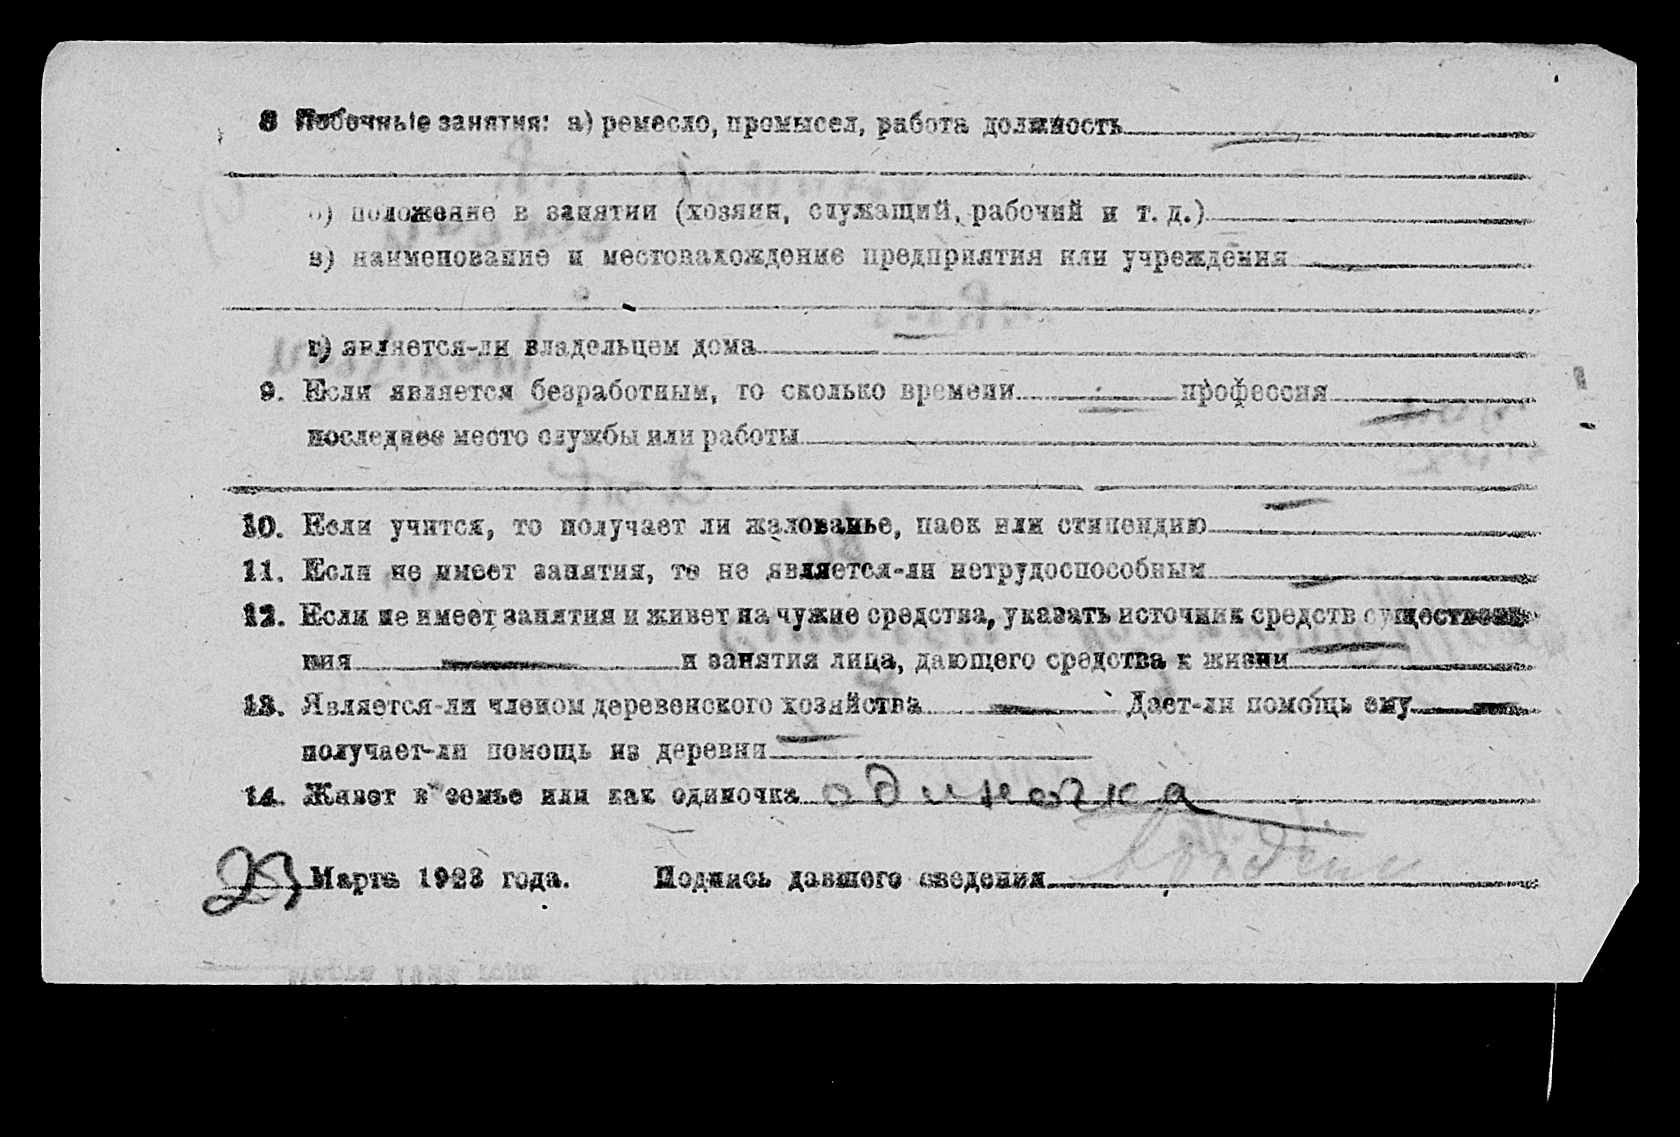 8 Побочные занятия: а) ремесло, промысел, работа должность
б) положение в занятии (хозяин, служащий, рабочий и т. д.)
в) наименование и местонахождение предприятия или учреждения
г) является-ли владельцем дома
9. Если является безработным, то сколько времени профессия
последнее место службы или работы
10. Если учится, то получает ли жалованье, паек или стипендию
11. Если не имеет занятия, то не является-ли нетрудоспособным
12. Если не имеет занятия и живет на чужие средства, указать источник средств существова-
ния и занятия лица, дающего средства к жизни
13. Является-ли членом деревенского хозяйства Дает-ли помощь ему
получает-ли помощь из деревни
14. Живет в семье или как одиночка одиночка
Марта 1923 года. Подпись давшего сведения